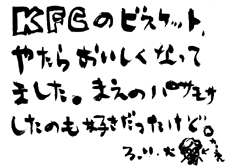 KFCのビスケット、
やたらおいしくなって
ました。まえのパサモサ
したのも好きだったけど。